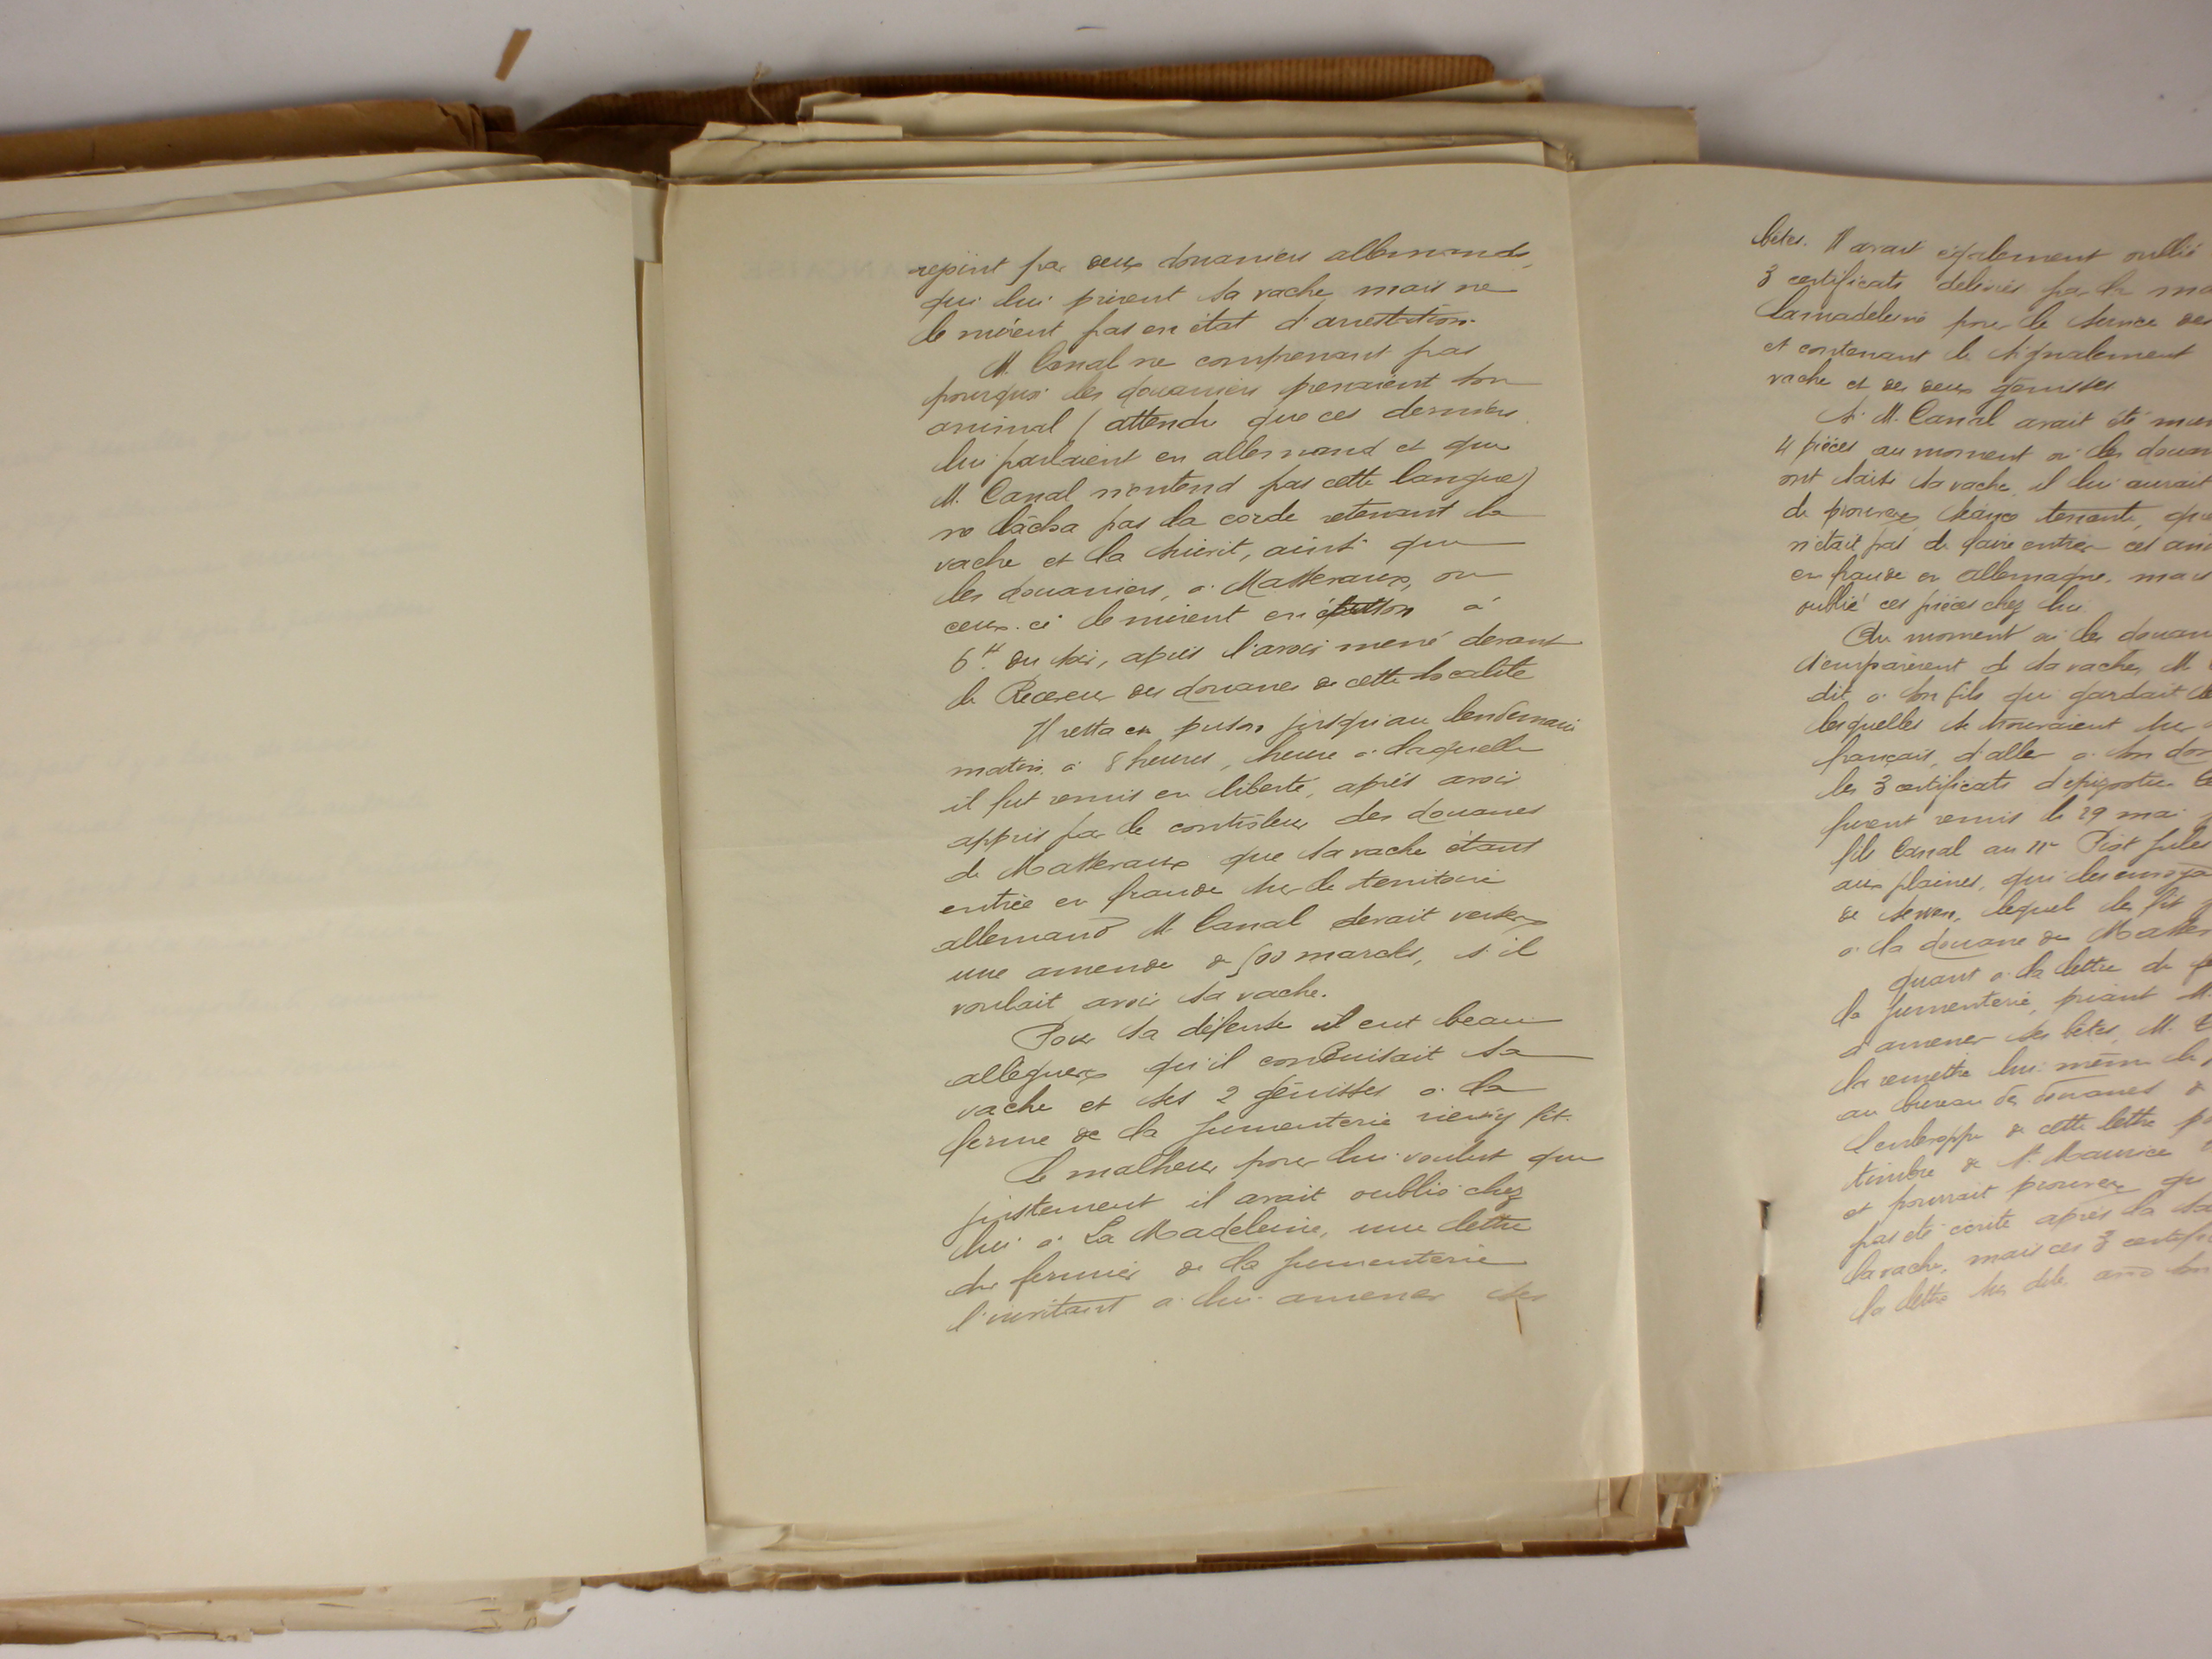 rejoint par deux douaniers allemands,
qui lui prirent sa vache, mais ne
le mirent pas en état d'arrestation.
M. Canal ne comprenant pas
pourquoi les douaniers prenaient son
animal (attendu que ces derniers
lui parlaient en allemand et que
M. Canal n'entend pas cette langue)
ne lâcha pas la corde retenant la
vache et la suivit, ainsi que
les douaniers, à Massevaux, où
ceux-ci le mirent en prison à
6 H. du soir, après l'avoir mené devant
le Receveur des douanes de cette localité
Il resta en prison jusqu'au lendemain
matin à 8 heures, heure à laquelle
il fut remis en liberté, après avoir
appris par le contrôleur des douanes
de Massevaux que sa vache étant
entrée en fraude sur le territoire
allemand M. Canal devait verser
une amende de 500 marcks, s'il
voulait avoir sa vache.
Pour sa défense il eut beau
alléguer qu'il conduisait sa
vache et ses 2 génisses à la
ferme de la Jumenterie rien n'y fit.
Le malheur pour lui voulut que
justement il avait oublié chez
lui à La Madeleine, une lettre
du fermier de la Jumenterie
l'invitant à lui amener ses
bêtes. Il avait également oublié
3 certificats délivrés par le
Lamadeleine pour le service des
et contenant le signalement
vache et des deux génisses
Si M. Canal avait été
4 pièces au moment où les
ont saisi sa vache, il lui aurait
de prouver, séance tenante,
n'était pas de faire entrer ces
en fraude en Allemagne, mais
oublié ces pièces chez lui.
Au moment où les
s'emparèrent de sa vache, M.
dit à son fils qui gardait
lesquelles se trouvaient sur
français, d'aller à son
les 3 certificats d'épizootie
furent remis le 29 mai
fils Canal au Sr Piot Jules
aux plaines, qui les envoya
de Sewen, lequel les fit
à la douane de
Quant à la lettre du
la Jumenterie, priant M.
d'amener ses bêtes, M.
la remettre lui-même le
au bureau des douanes de
L'enveloppe de cette lettre
timbre de St Maurice
et pourrait prouver
pas été écrite après la
la vache, mais ces 3
la lettre